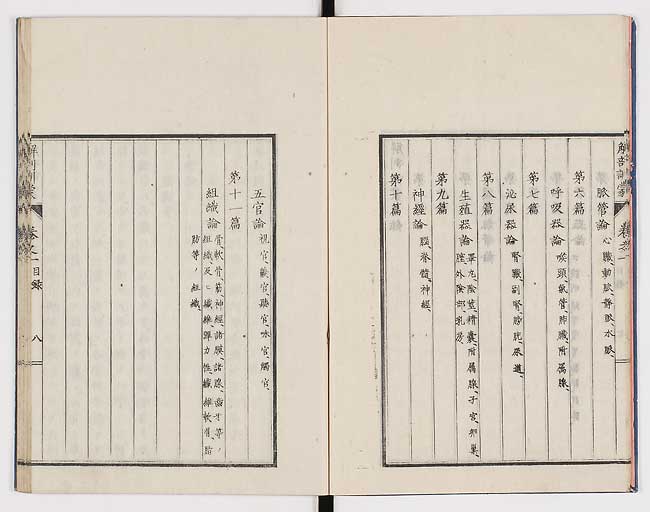 解剖訓蒙
卷之一
脉管論 心臓、動脉、静脉、水脉、
第六篇
呼吸器論 喉頭、氣管、肺臓、附属腺、
第七篇
泌尿器論 腎臓、副腎、膀胱、尿道、
第八篇
生殖器論 睾丸、陰莖、精囊、附属腺、子宮、卵巢、
膣、外陰部、乳房、
第九篇
神經論 腦、脊髓、神經、
第十篇
五官論 視官、嗅官、聽官、味官、觸官、
第十一篇
組織論 骨、軟骨、筋、神經、諸膜、諸腺、齒牙等ノ
組織、及ヒ纖維、彈力性纖維、軟骨、脂
肪等ノ組織、
卷之一 目録
八